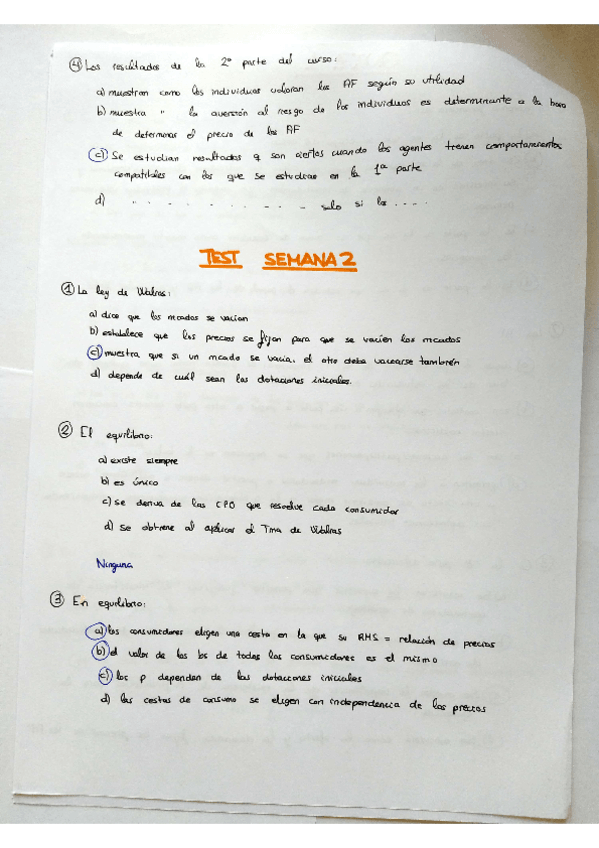 ④ Los resultados de la 2ª parte del curso:
a) muestran como los individuos valoran los AF según su utilidad
b) muestra " la aversión al riesgo de los individuos es determinante a la hora
de determinar el precio de los AF
c) Se estudian resultados q son ciertos cuando los agentes tienen comportamientos
compatibles con los que se estudian en la 1ª parte
d) " . . - . . . . . - - solo si la . . . .
TEST SEMANA 2
① La ley de Walras:
a) dice que los mcados se vacían
b) establece que los precios se fijan para que se vacíen los mcados
c) muestra que si un mcado se vacía, el otro debe vaciarse también
d) depende de cuál sean las dotaciones iniciales.
② El equilibrio:
a) existe siempre
b) es único
c) se deriva de las CPO que resuelve cada consumidor
d) Se obtiene al aplicar el Tma de Walras
Ninguna
③ En equilibrio:
a) los consumidores eligen una cesta en la que su RMS = relación de precios
b) el valor de las de todos los consumidores es el mismo
c) los p dependen de las dotaciones iniciales
d) las cestas de consumo se eligen con independencia de los precios